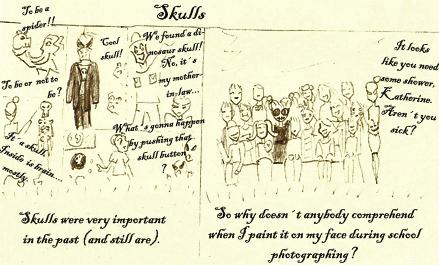 Skulls
To be a
spider!!
Cool
skull!
We found a di-
nosaur skull!
No, it´s
my mother-
in-law...
To be or not to
be?
It´s a skull.
Inside is brain...
mostly.
What´s gonna happen
by pushing that
skull button
?
Skulls were very important
in the past (and still are).
It looks
like you need
some shower,
Katherine.
Aren´t you
sick?
So why doesn´t anybody comprehend
when I paint it on my face during school
photographing?